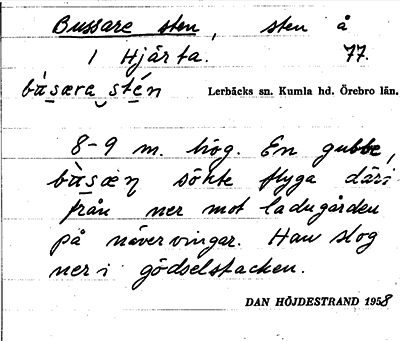 Bussare sten, sten å
1 Hjärta. 77.
bùsæra stén Lerbäcks sn. Kumla hd. Örebro län.
8-9 m. hög. En gubbe,
bùsæn sökte flyga där-
ifrån ner mot ladugården
på nävervingar. Han slog
ner i gödselstacken.
DAN HÖJDESTRAND 1958